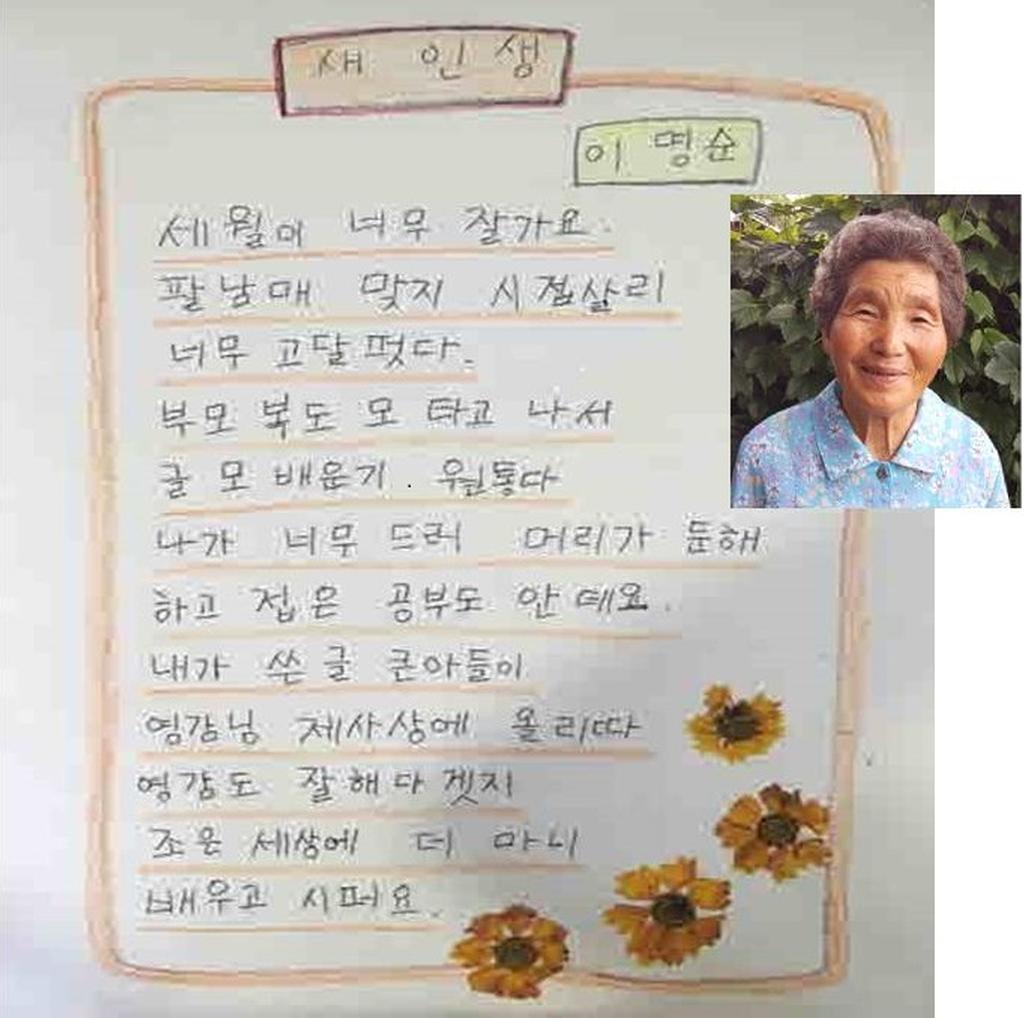 새 인생
이 명순
세월이 너무 잘가요.
팔남매 맞지 시접살리
너무 고달펏다.
부모 복도 모 타고 나서
글 모 배운기 . 원통다
나가 너무 드러 머리가 둔해
하고 접은 공부도 안 데요.
내가 쓴 글 큰아들이
영감님 제사상에 올리따
영감도 잘해다 겟지
조은 세상에 더 마니
배우고 시퍼요.